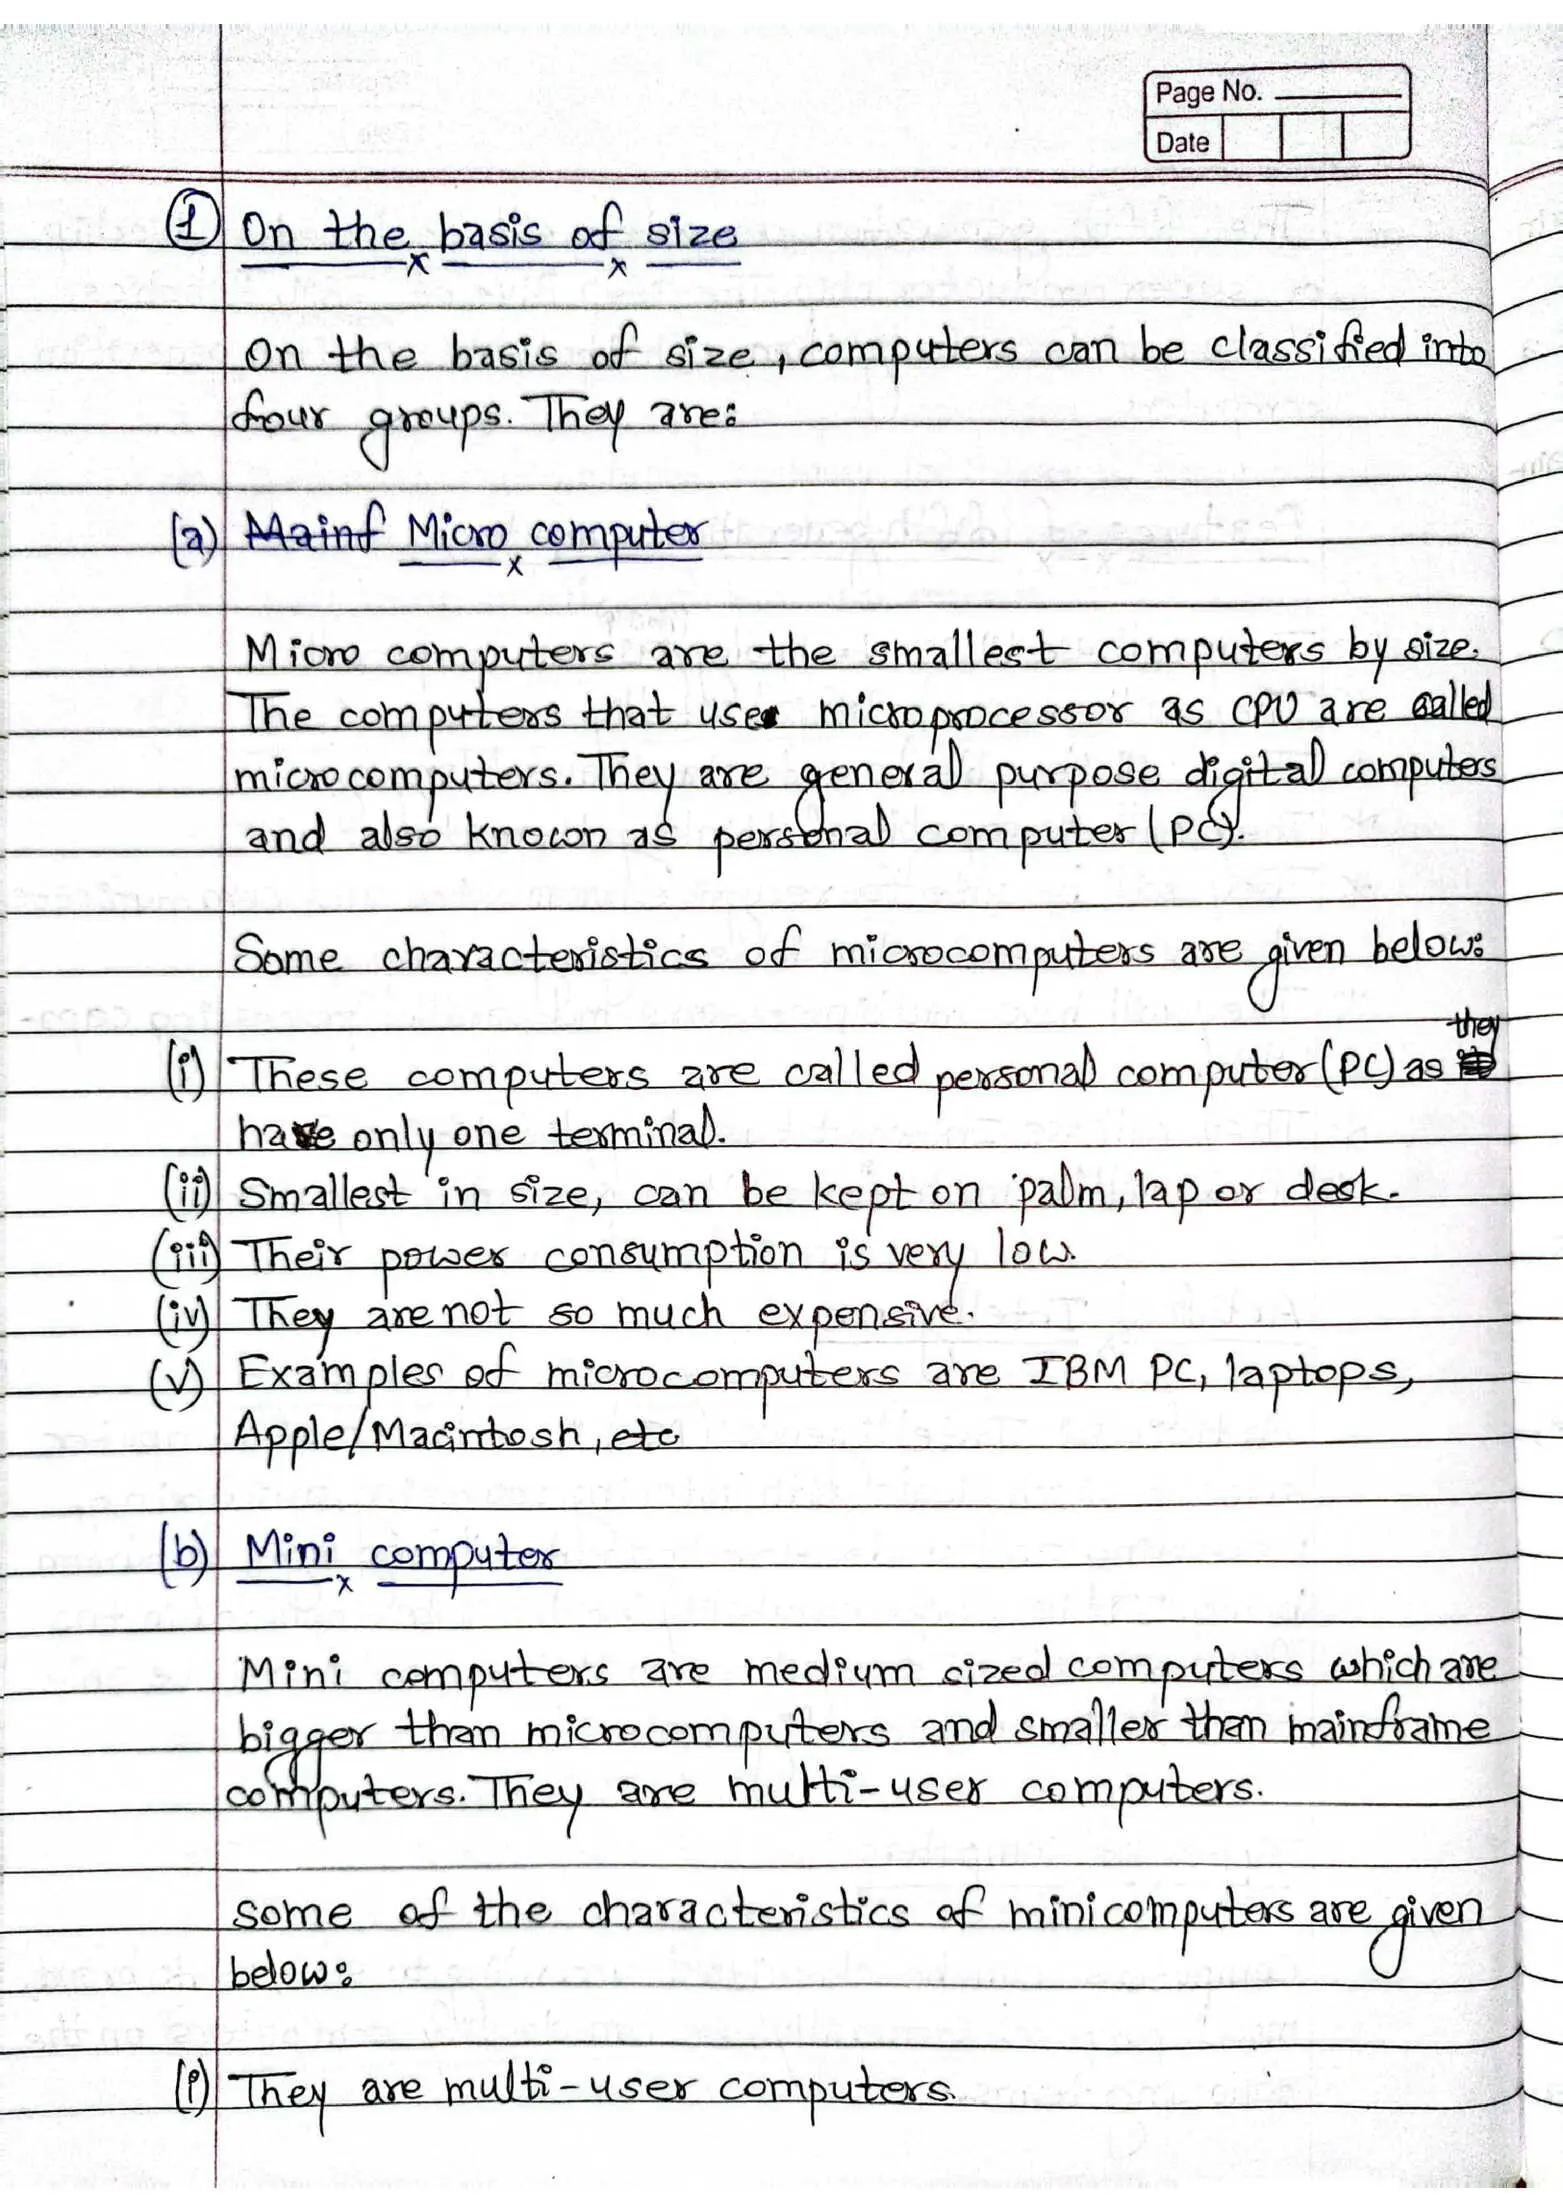 Page No.
Date
① On the basis of size
On the basis of size, computers can be classified into
four groups. They are:
(a) Mainf Micro computer
Micro computers are the smallest computers by size.
The computers that use microprocessor as CPU are called
microcomputers. They are general purpose digital computers
and also known as personal computer (PC).
Some characteristics of microcomputers are given below:
they
(i) These computers are called personal computer (PC) as
have only one terminal.
(ii) Smallest in size, can be kept on palm, lap or desk.
(iii) Their power consumption is very low.
(iv) They are not so much expensive.
(v) Examples of microcomputers are IBM PC, laptops,
Apple/Macintosh, etc
(b) Mini computer
Mini computers are medium sized computers which are
bigger than microcomputers and smaller than mainframe
computers. They are multi-user computers.
some of the characteristics of minicomputers are given
below:
(i) They are multi-user computers.